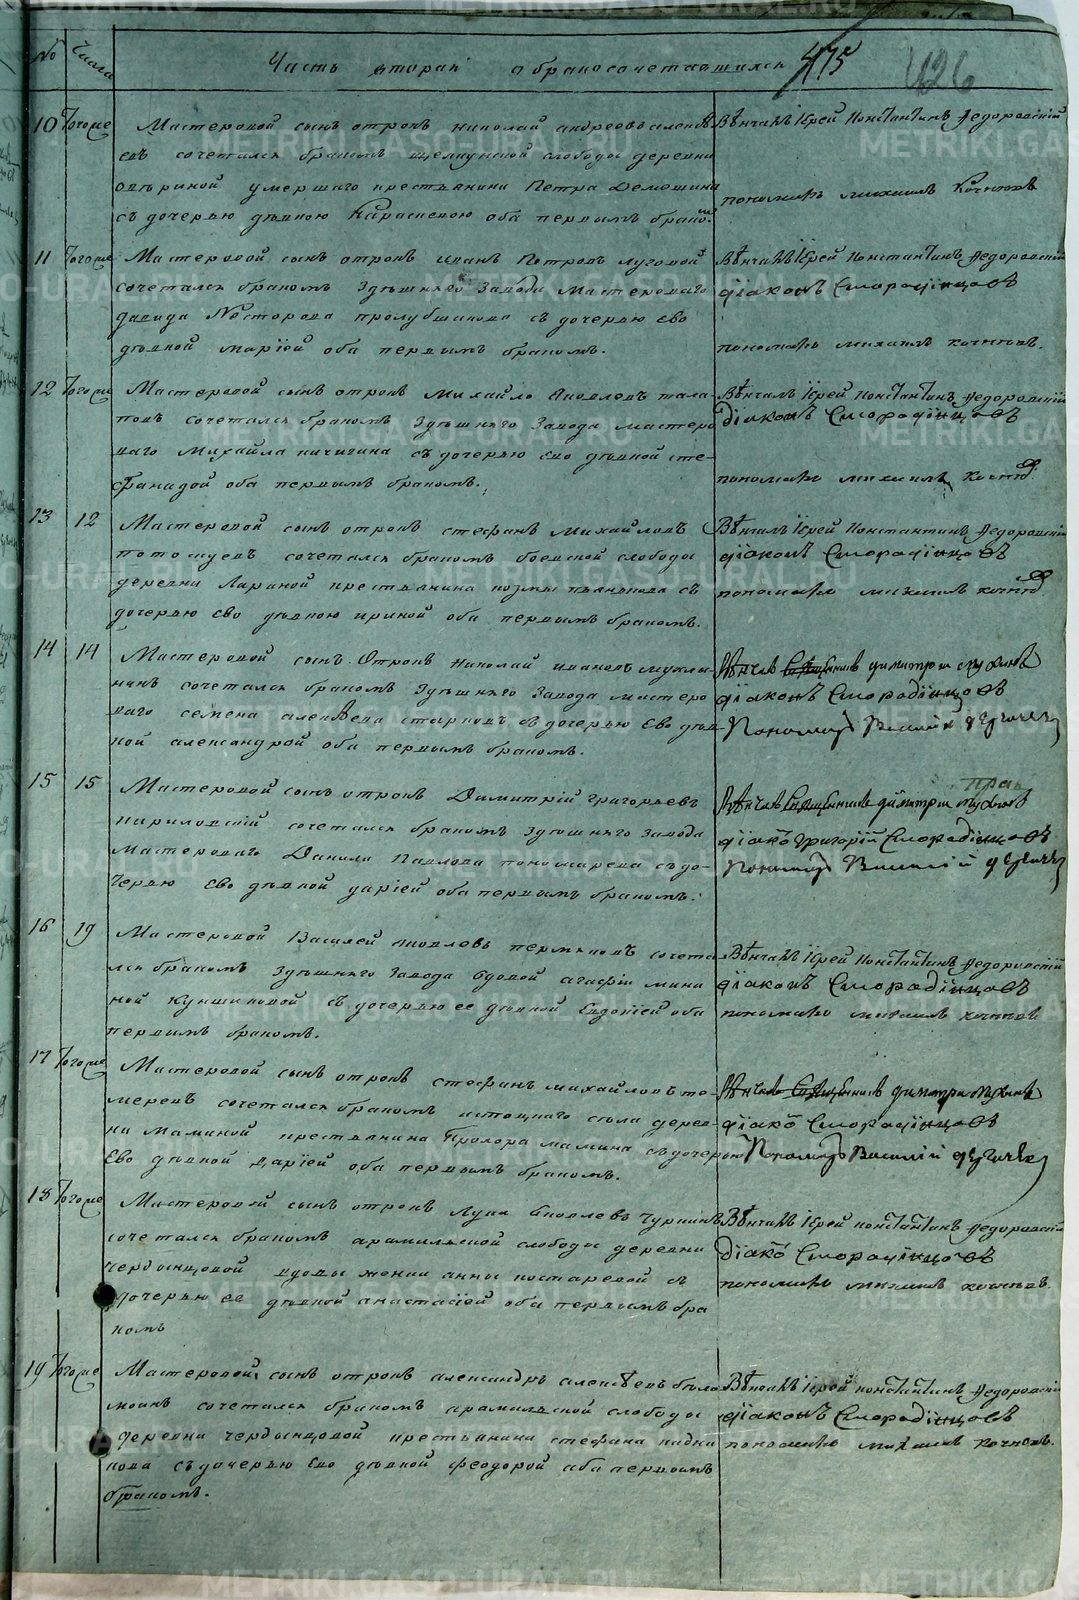 № Числа Часть вторая о бракосочетавшихся 475 426
10 Того же Мастеровой сынъ отрокъ николай андреевъ алекѣ
евъ сочетался бракомъ щелкунской слободы деревни
умершаго крестьянина Петра Демешина
съ дочерью дѣвкою оба первымъ бракомъ
Вѣнчалъ Іерей Константинъ Федоровскій
пономарь михаилъ Кочневъ
11 Того же Мастеровой сынъ отрокъ иванъ Петровъ луговой
сочетался бракомъ здѣшнего завода мастероваго
давида Несторова съ дочерью ево
дѣвкой маріей оба первымъ бракомъ.
Вѣнчалъ Іерей Константинъ Федоровскій
діаконъ Смородинцовъ
пономарь михаилъ кочневъ.
12 Того же Мастеровой сынъ отрокъ михайло яковлевъ тала
повъ сочетался бракомъ здѣшняго завода мастеро
ваго михайла кичигина съ дочерью ево дѣвкой сте-
фанидой оба первымъ бракомъ.
Вѣнчалъ Іерей Константинъ Федоровскій
діаконъ Смородинцовъ
пономарь михаилъ
13 12 Мастеровой сынъ отрокъ стефанъ михайловъ
сочетался бракомъ боевской слободы
деревни крестьянина козмы съ
дочерью ево дѣвкою ириной оба первымъ бракомъ.
Вѣнчалъ Іерей Константинъ Федоровскій
діаконъ Смородинцовъ
пономарь михаилъ
14 14 Мастеровой сынъ Отрокъ николай ивановъ мухла
нинъ сочетался бракомъ здѣшняго завода мастеро
ваго семена алекѣева старковъ съ дочерью ево дѣв
кой александрой оба первымъ бракомъ.
Вѣнчалъ Священникъ димитрій
діаконъ Смородинцовъ
Пономарь Василій
15 15 Мастеровой сынъ отрокъ Димитрій григорьевъ
кириловскій сочетался бракомъ здѣшняго завода
мастероваго Данила Павлова пономарева съ до-
черью ево дѣвкой даріей оба первымъ бракомъ.
Вѣнчалъ Священникъ димитрій
діако григорій Смородинцовъ
Пономарь Василій
16 19 Мастеровой Василей яковлевъ пермяковъ сочета
лся бракомъ здѣшняго завода вдовой агафіи
съ дочерью ее дѣвкой Евдокіей оба
первымъ бракомъ.
Вѣнчалъ Іерей Константинъ Федоровскій
діаконъ Смородинцовъ
пономарь михаилъ кочневъ
17 Того же Мастеровой сынъ отрокъ стефанъ михайловъ то
меревъ сочетался бракомъ села дерев-
ни маминой крестьянина Прохора мамина съ дочерью
Ево дѣвкой дарІей оба первымъ бракомъ.
Вѣнчалъ Священникъ димитрій
діако Смородинцовъ
Пономарь Василій
18 Того же Мастеровой сынъ отрокъ Лука яковлевъ
сочетался бракомъ арамильской слободы деревни
чердынцовой вдовы женки анны костаревой с
дочерью ее дѣвкой анастасіей оба первымъ бра
комъ
Вѣнчалъ Іерей Константинъ Федоровскій
діако Смородинцовъ
пономарь михаилъ кочневъ.
19 Того же Мастеровой сынъ отрокъ александръ алекѣевъ было
сочетался бракомъ арамильской слободы
деревни чердынцовой крестьянина стефана
съ дочерью Ево дѣвкой феодорой оба первымъ
бракомъ.
Вѣнчалъ Іерей Константинъ Федоровскій
діаконъ Смородинцовъ
пономарь михаилъ кочневъ.
METRIKI.GASO-URAL.RU